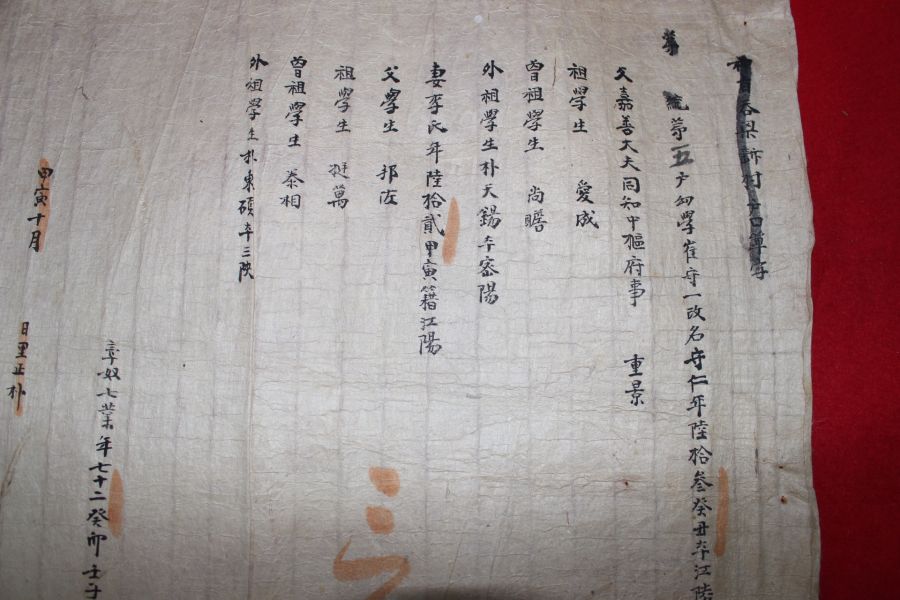 第 統第五户幼學崔守一改名守仁年陸拾叁癸丑本江陸
父嘉善大夫同知中樞府事 重景
祖學生 愛成
曾祖學生 尚瞻
外祖學生朴天錫本密陽
妻李氏年陸拾貳甲寅籍江陽
父學生 邦佐
祖學生 挺萬
曾祖學生 泰相
外祖學生朴東碩本三陟
率奴七業年七十二癸卯 壬子
甲寅十月 日里正朴